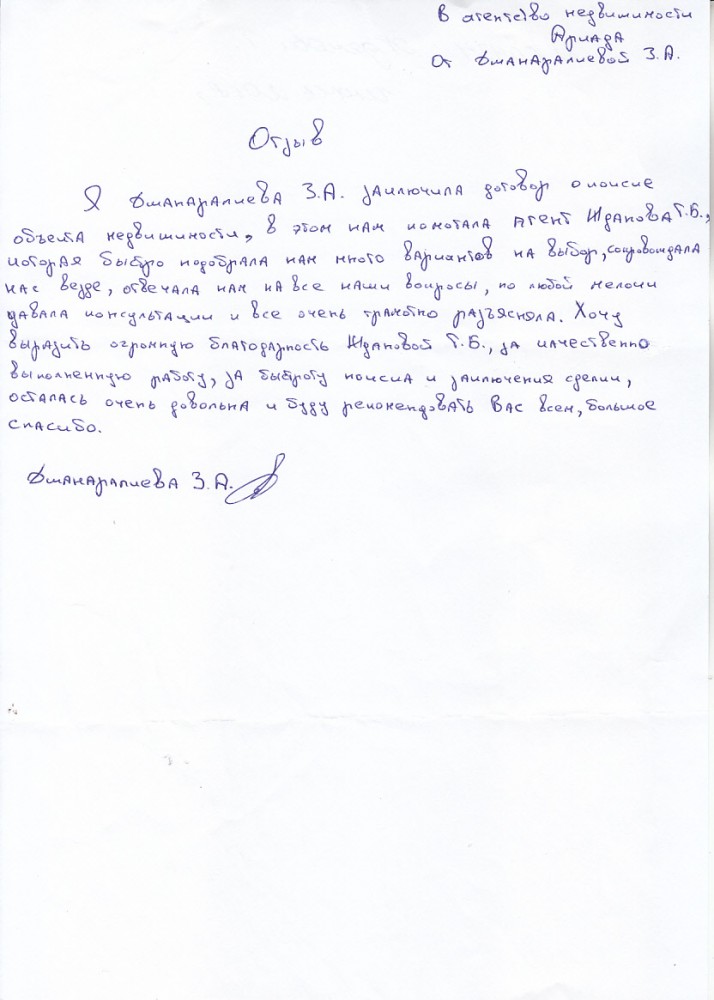 В агентство недвижимости
Ариада
От Джанаралиевой З.А.
Отзыв
Я Джанаралиева З.А. заключила договор о поиске
объекта недвижимости, в этом нам помогала Агент Жданова Т.Б.,
которая быстро подобрала нам много вариантов на выбор, сопровождала
нас везде, отвечала нам на все наши вопросы, по любой мелочи
давала консультации и все очень грамотно разъясняла. Хочу
выразить огромную благодарность Ждановой Т.Б., за качественно
выполненную работу, за быстроту поиска и заключения сделки,
осталась очень довольна и буду рекомендовать Вас всем, большое
спасибо.
Джанаралиева З.А.